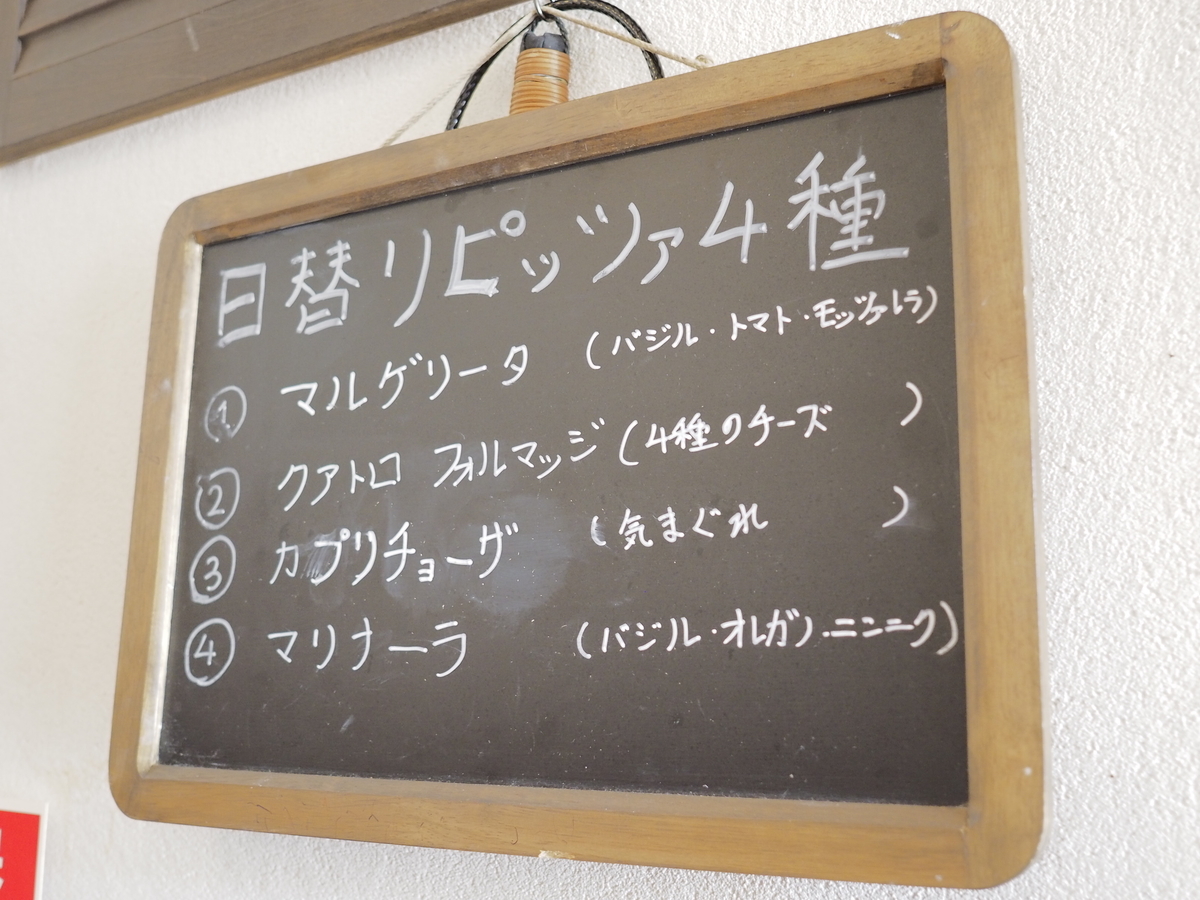 日替りピッツァ4種
① マルゲリータ (バジル・トマト・モッツァレラ)
② クアトロ フォルマッジ (4種のチーズ )
③ カプリチョーザ (気まぐれ )
④ マリナーラ (バジル・オレガノ・ニンニク)